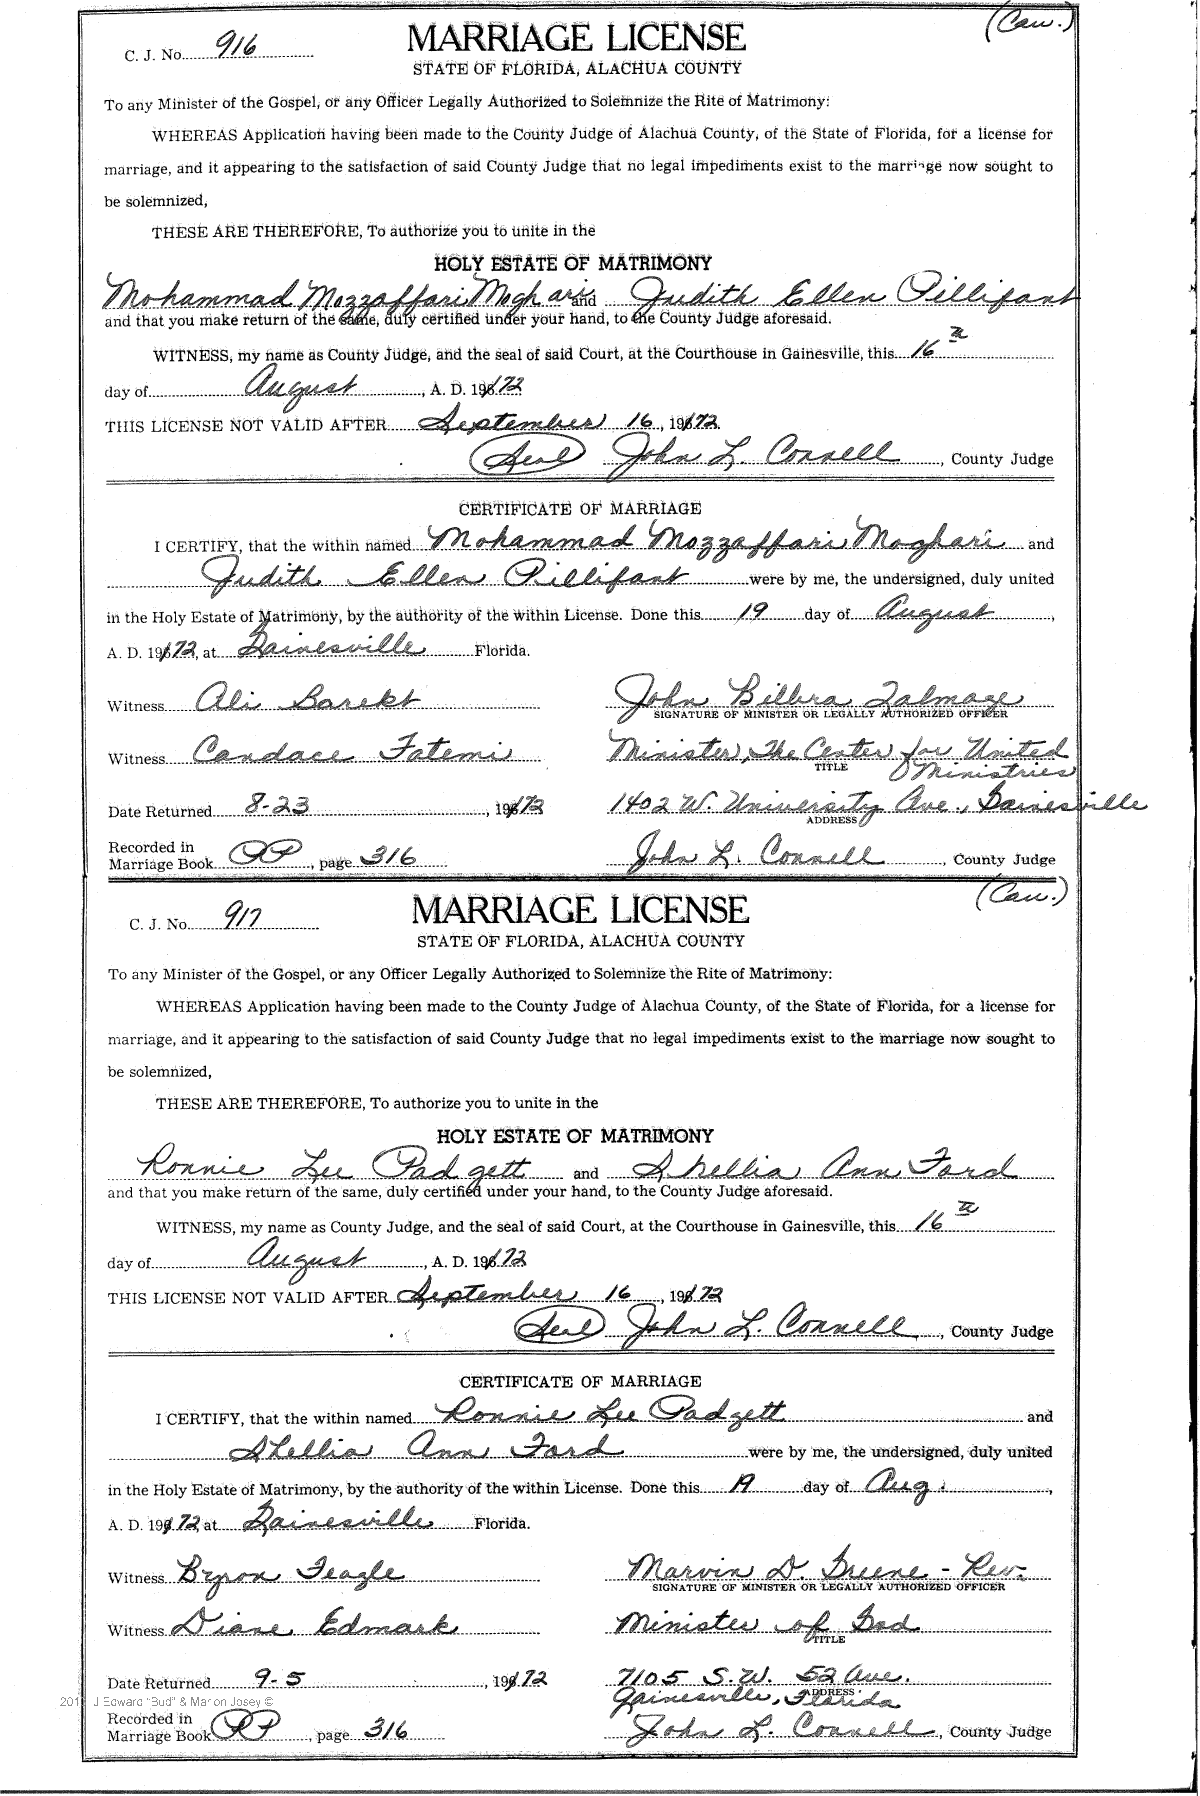 (Cau.)
C. J. No. 916 MARRIAGE LICENSE
STATE OF FLORIDA, ALACHUA COUNTY
To any Minister of the Gospel, or any Officer Legally Authorized to Solemnize the Rite of Matrimony:
WHEREAS Application having been made to the County Judge of Alachua County, of the State of Florida, for a license for
marriage, and it appearing to the satisfaction of said County Judge that no legal impediments exist to the marriage now sought to
be solemnized,
THESE ARE THEREFORE, To authorize you to unite in the
HOLY ESTATE OF MATRIMONY
Mohammad Mozzaffari Moghari and Judith Ellen Pillifant
and that you make return of the same, duly certified under your hand, to the County Judge aforesaid.
WITNESS, my name as County Judge, and the seal of said Court, at the Courthouse in Gainesville, this 16th
day of August, A. D. 1972
THIS LICENSE NOT VALID AFTER September 16, 1972
(Seal) John L. Connell, County Judge
CERTIFICATE OF MARRIAGE
I CERTIFY, that the within named Mohammad Mozzaffari Moghari and
Judith Ellen Pillifant were by me, the undersigned, duly united
in the Holy Estate of Matrimony, by the authority of the within License. Done this 19 day of August,
A. D. 1972, at Gainesville Florida.
Witness Ali Barekt John Bilbra Talmage
SIGNATURE OF MINISTER OR LEGALLY AUTHORIZED OFFICER
Witness Candace Fatemi Minister, The Center for United
TITLE Ministries
Date Returned 8-23, 1972 1402 W. University Ave., Gainesville
ADDRESS
Recorded in
Marriage Book PP, page 316 John L. Connell, County Judge
(Cau.)
C. J. No. 917 MARRIAGE LICENSE
STATE OF FLORIDA, ALACHUA COUNTY
To any Minister of the Gospel, or any Officer Legally Authorized to Solemnize the Rite of Matrimony:
WHEREAS Application having been made to the County Judge of Alachua County, of the State of Florida, for a license for
marriage, and it appearing to the satisfaction of said County Judge that no legal impediments exist to the marriage now sought to
be solemnized,
THESE ARE THEREFORE, To authorize you to unite in the
HOLY ESTATE OF MATRIMONY
Ronnie Lee Padgett and Shellia Ann Ford
and that you make return of the same, duly certified under your hand, to the County Judge aforesaid.
WITNESS, my name as County Judge, and the seal of said Court, at the Courthouse in Gainesville, this 16th
day of August, A. D. 1972
THIS LICENSE NOT VALID AFTER September 16, 1972
(Seal) John L. Connell, County Judge
CERTIFICATE OF MARRIAGE
I CERTIFY, that the within named Ronnie Lee Padgett and
Shellia Ann Ford were by me, the undersigned, duly united
in the Holy Estate of Matrimony, by the authority of the within License. Done this 19 day of Aug.,
A. D. 1972 at Gainesville Florida.
Witness Byron Feagle Marvin D. Greene - Rev.
SIGNATURE OF MINISTER OR LEGALLY AUTHORIZED OFFICER
Witness Diane Edmark Minister of God
TITLE
Date Returned 9-5, 1972 7105 S.W. 52 Ave.
ADDRESS
J Edward "Bud" & Marion Josey © Gainesville, Florida
Recorded in
Marriage Book PP, page 316 John L. Connell, County Judge